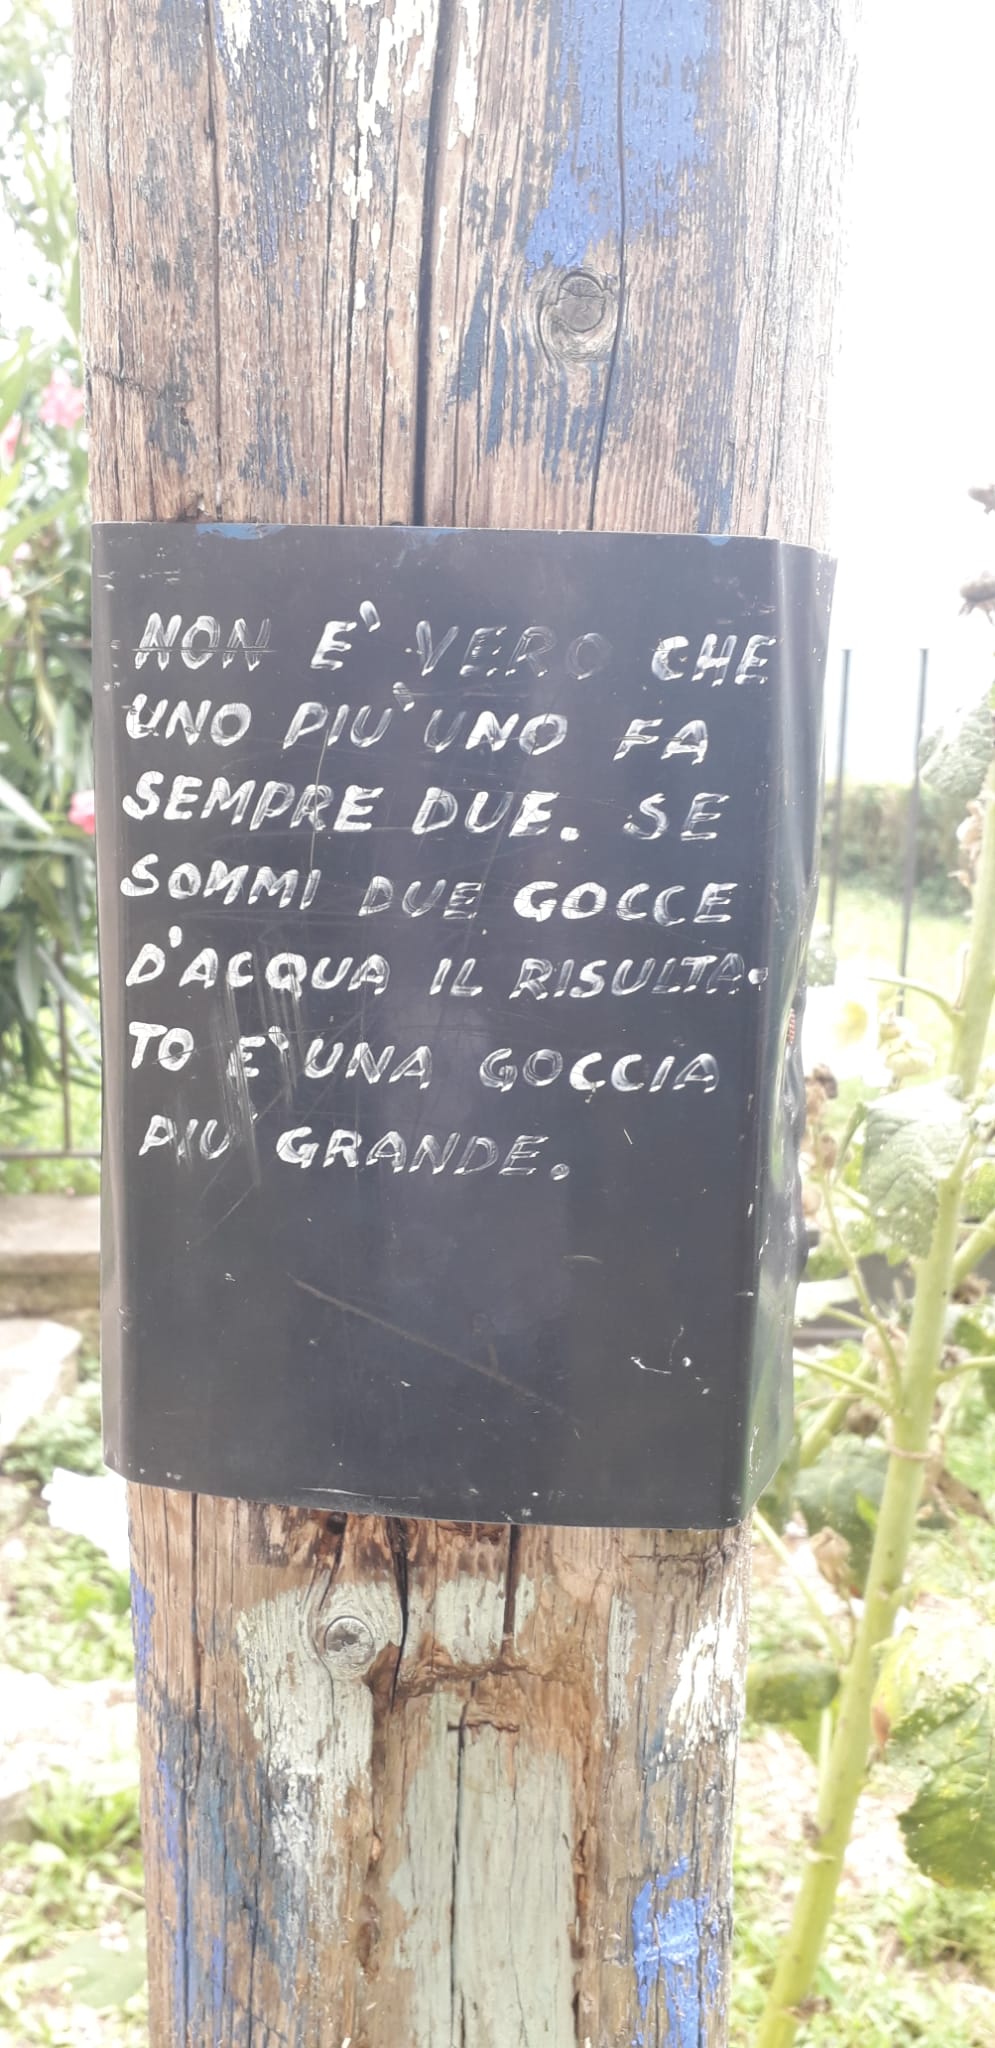 NON E' VERO CHE
UNO PIU' UNO FA
SEMPRE DUE. SE
SOMMI DUE GOCCE
D'ACQUA IL RISULTA-
TO E' UNA GOCCIA
PIU' GRANDE.